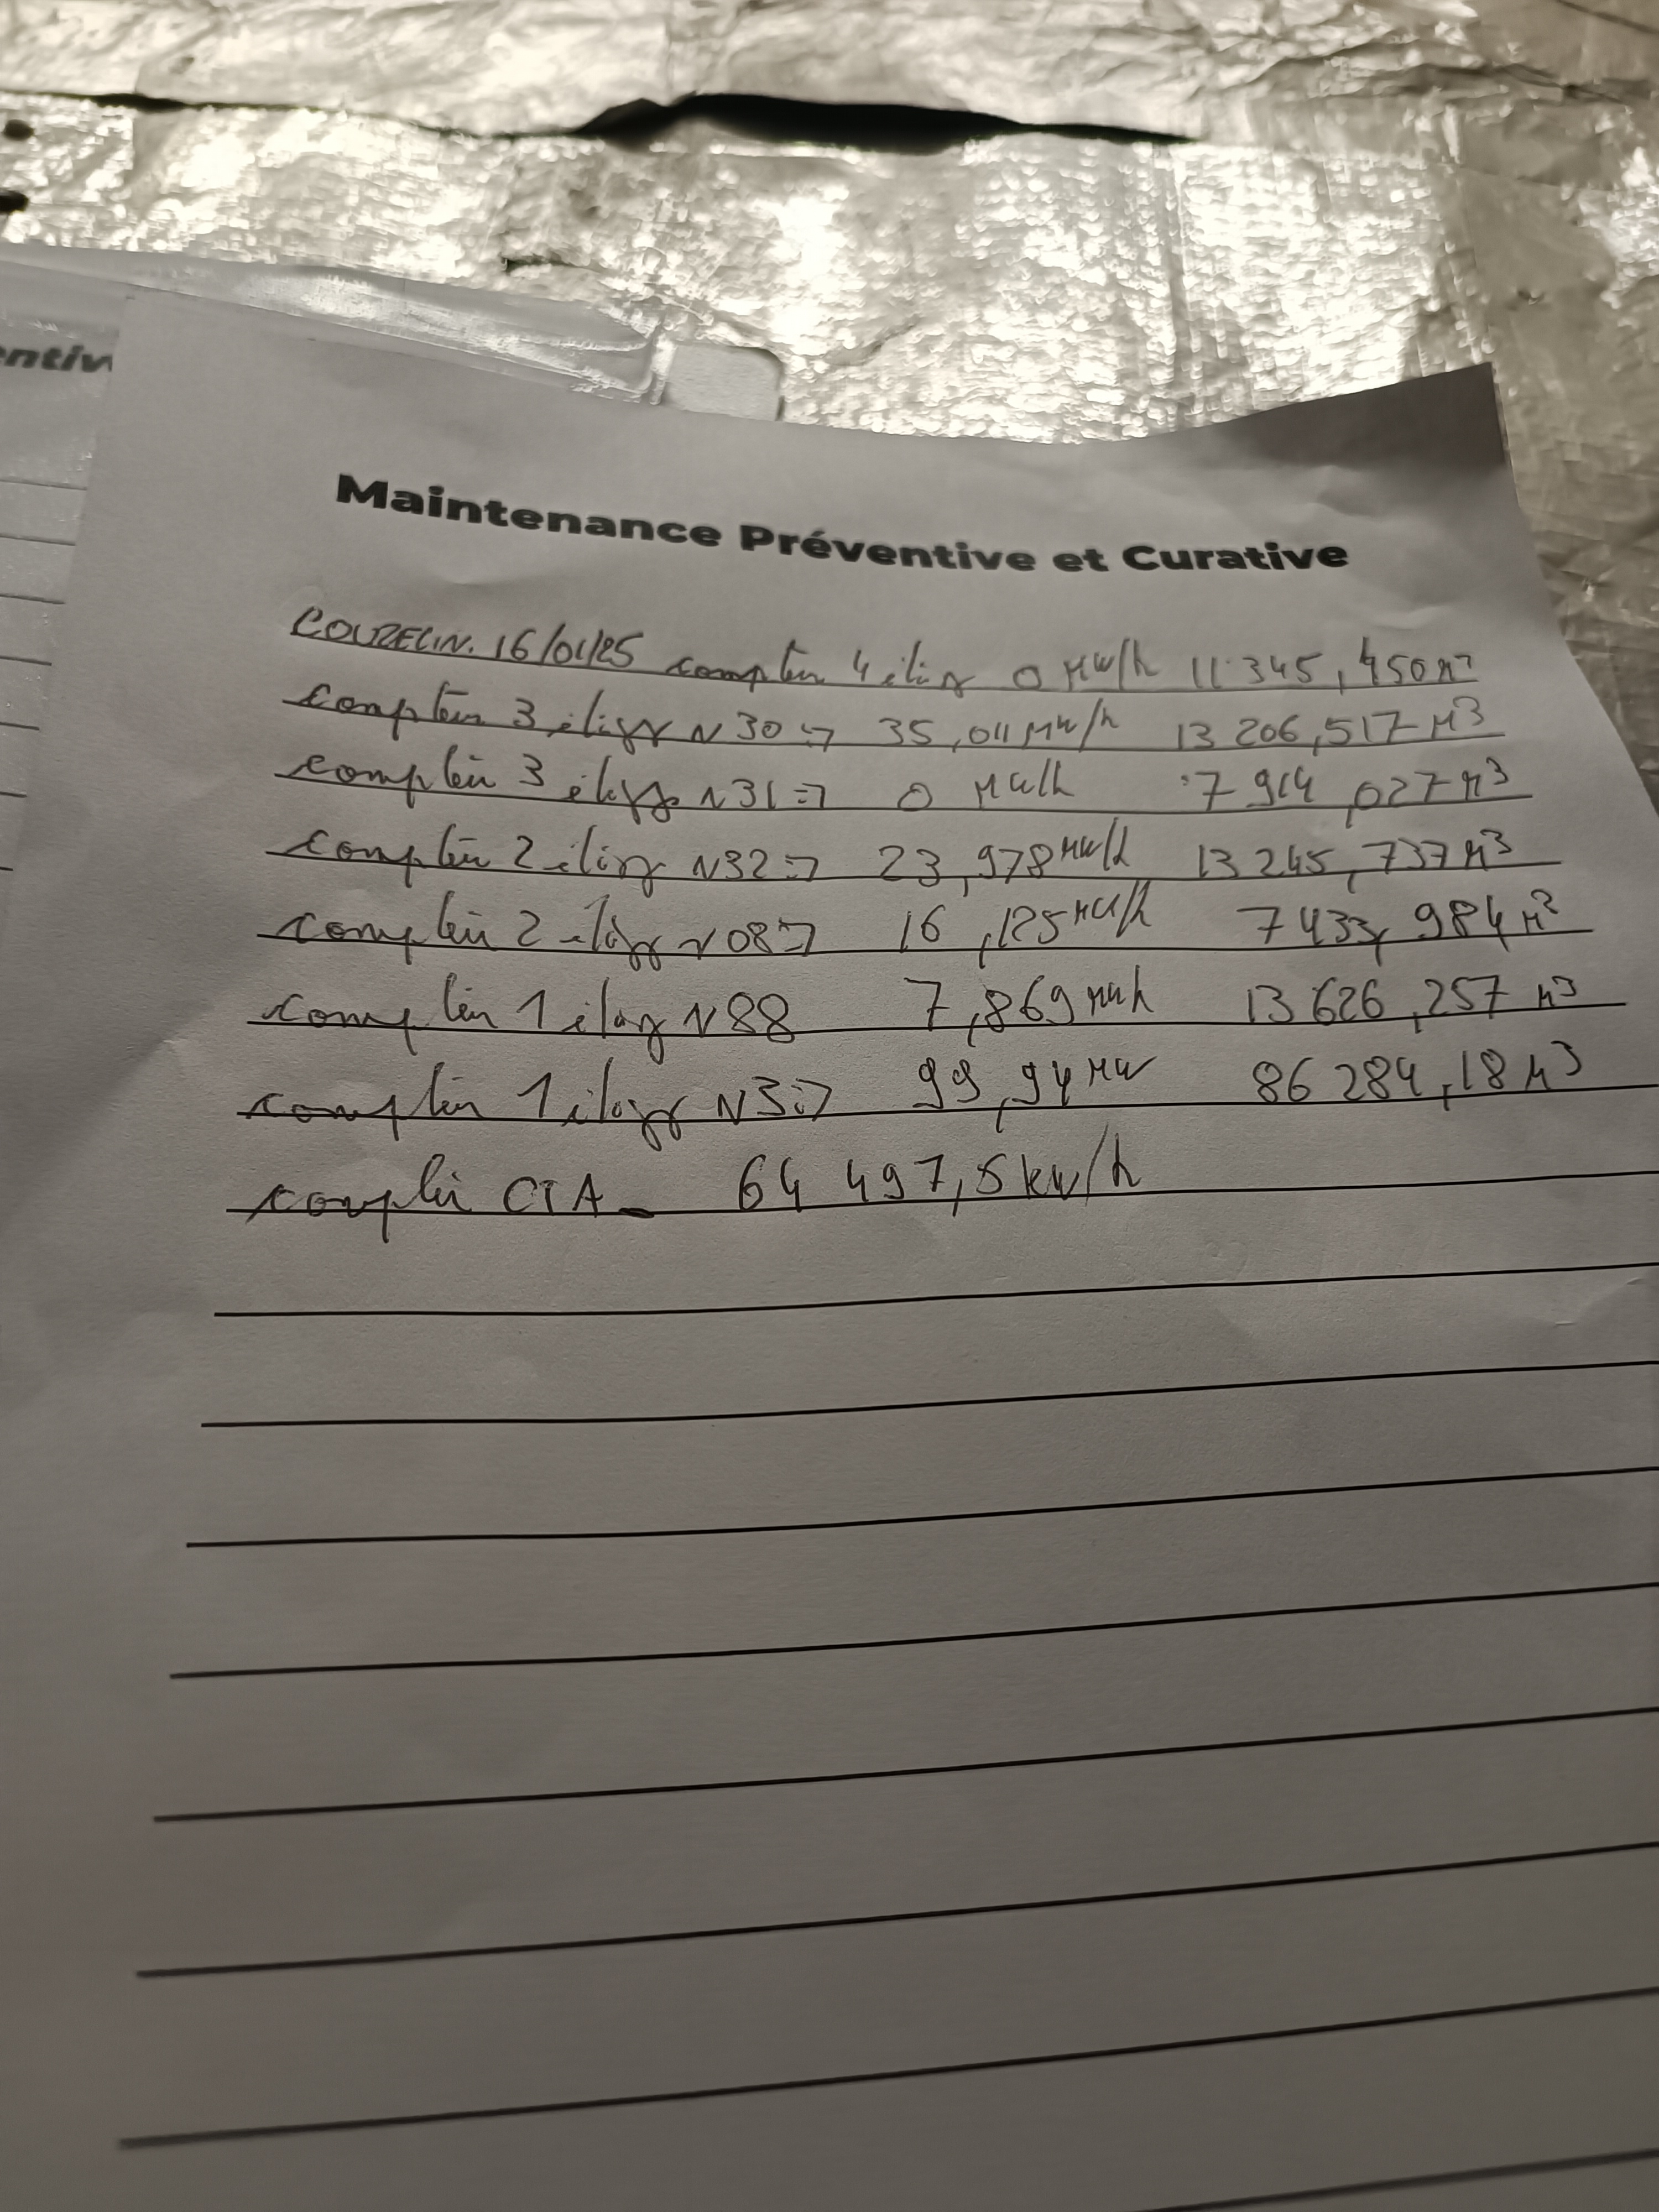 entiv
Maintenance Préventive et Curative
COUZELIN. 16/01/25 compteur 4 étag 0 MW/h 11 345, 450 m3
compteur 3 étage N30 => 35,011 MW/h 13 206,517 M3
compteur 3 étage N31 => 0 MW/h 7 914,027 M3
compteur 2 étage N32 => 23,978 MW/h 13 245,737 M3
compteur 2 étage N08 => 16,125 MW/h 7 433, 984 M3
compteur 1 étage N88 7,869 MWh 13 626,257 M3
compteur 1 étage N3 => 99,94 MW 86 284,18 M3
compteur CTA - 64 497,5 kw/h